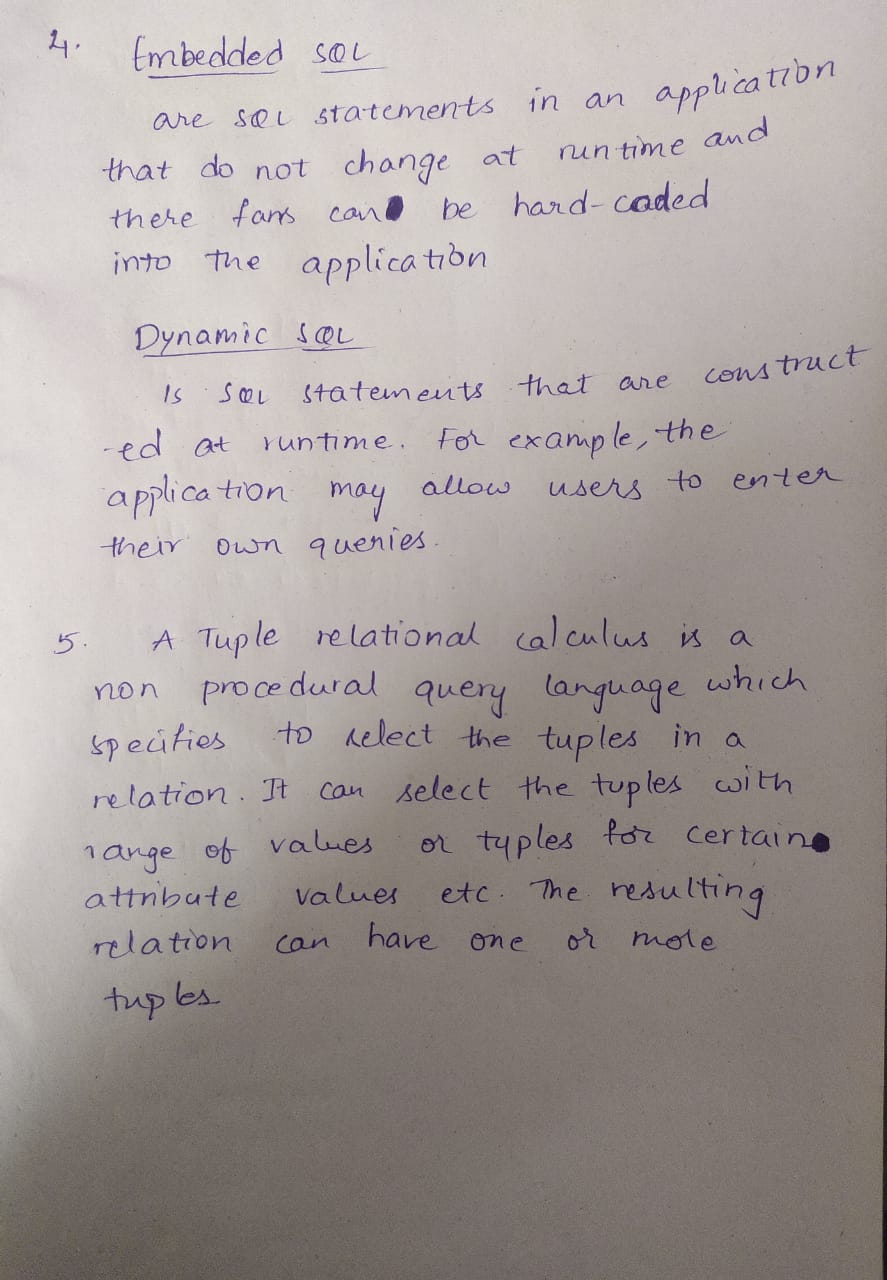 4. Embedded SQL
are SQL statements in an application
that do not change at runtime and
there fans can be hard-coded
into the application
Dynamic SQL
Is SQL statements that are construct
-ed at runtime. For example, the
application may allow users to enter
their own queries.
5. A Tuple relational calculus is a
non procedural query language which
specifies to select the tuples in a
relation. It can select the tuples with
range of values or typles for certain
attribute values etc. The resulting
relation can have one or more
tuples